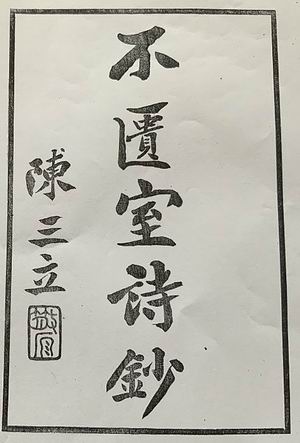 不匱室詩鈔
陳三立
散原